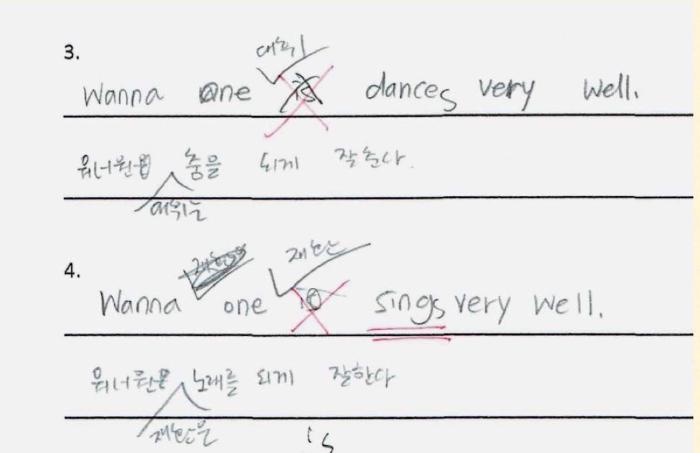 3.
대휘
Wanna one dances very well.
워너원 춤을 되게 잘춘다.
대휘는
4.
재환
Wanna one sings very well.
워너원 노래를 되게 잘한다
재환은
is